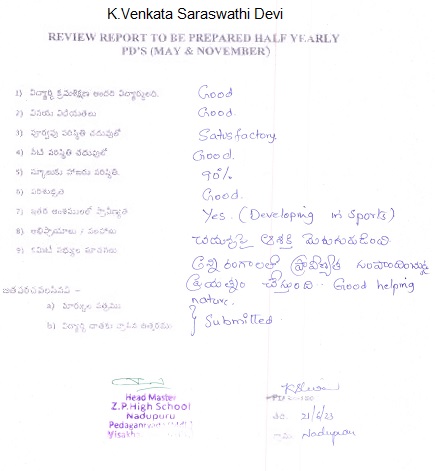 K.Venkata Saraswathi Devi
REVIEW REPORT TO BE PREPARED HALF YEARLY
PD'S (MAY & NOVEMBER)
1) విద్యార్థి క్రమశిక్షణ అందరి విద్యార్థులతో. Good
2) వినయ విధేయతలు Good.
3) పూర్వపు పరిస్థితి చదువులో Satisfactory
4) నేటి పరిస్థితి చదువులో Good.
5) స్కూలుకు హాజరు పరిస్థితి. 90%
6) పరిశుభ్రత Good.
7) ఇతర అంశములలో ప్రావీణ్యత Yes. (Developing in sports)
8) అభిప్రాయాలు / సలహాలు చదువుపై ఆశక్తి
9) కమిటీ సభ్యుల సూచనలు
అన్ని రంగాలలో ప్రావీణ్యత
ప్రయత్నం చేస్తుంది.. Good helping
nature.
జతపరచవలసినవి -
a) మార్కుల పత్రము
b) విద్యార్థి దాతకు వ్రాసిన ఉత్తరము } Submitted.
Head Master
Z.P.High School
Nadupuru
21/6/23
Nadupuru